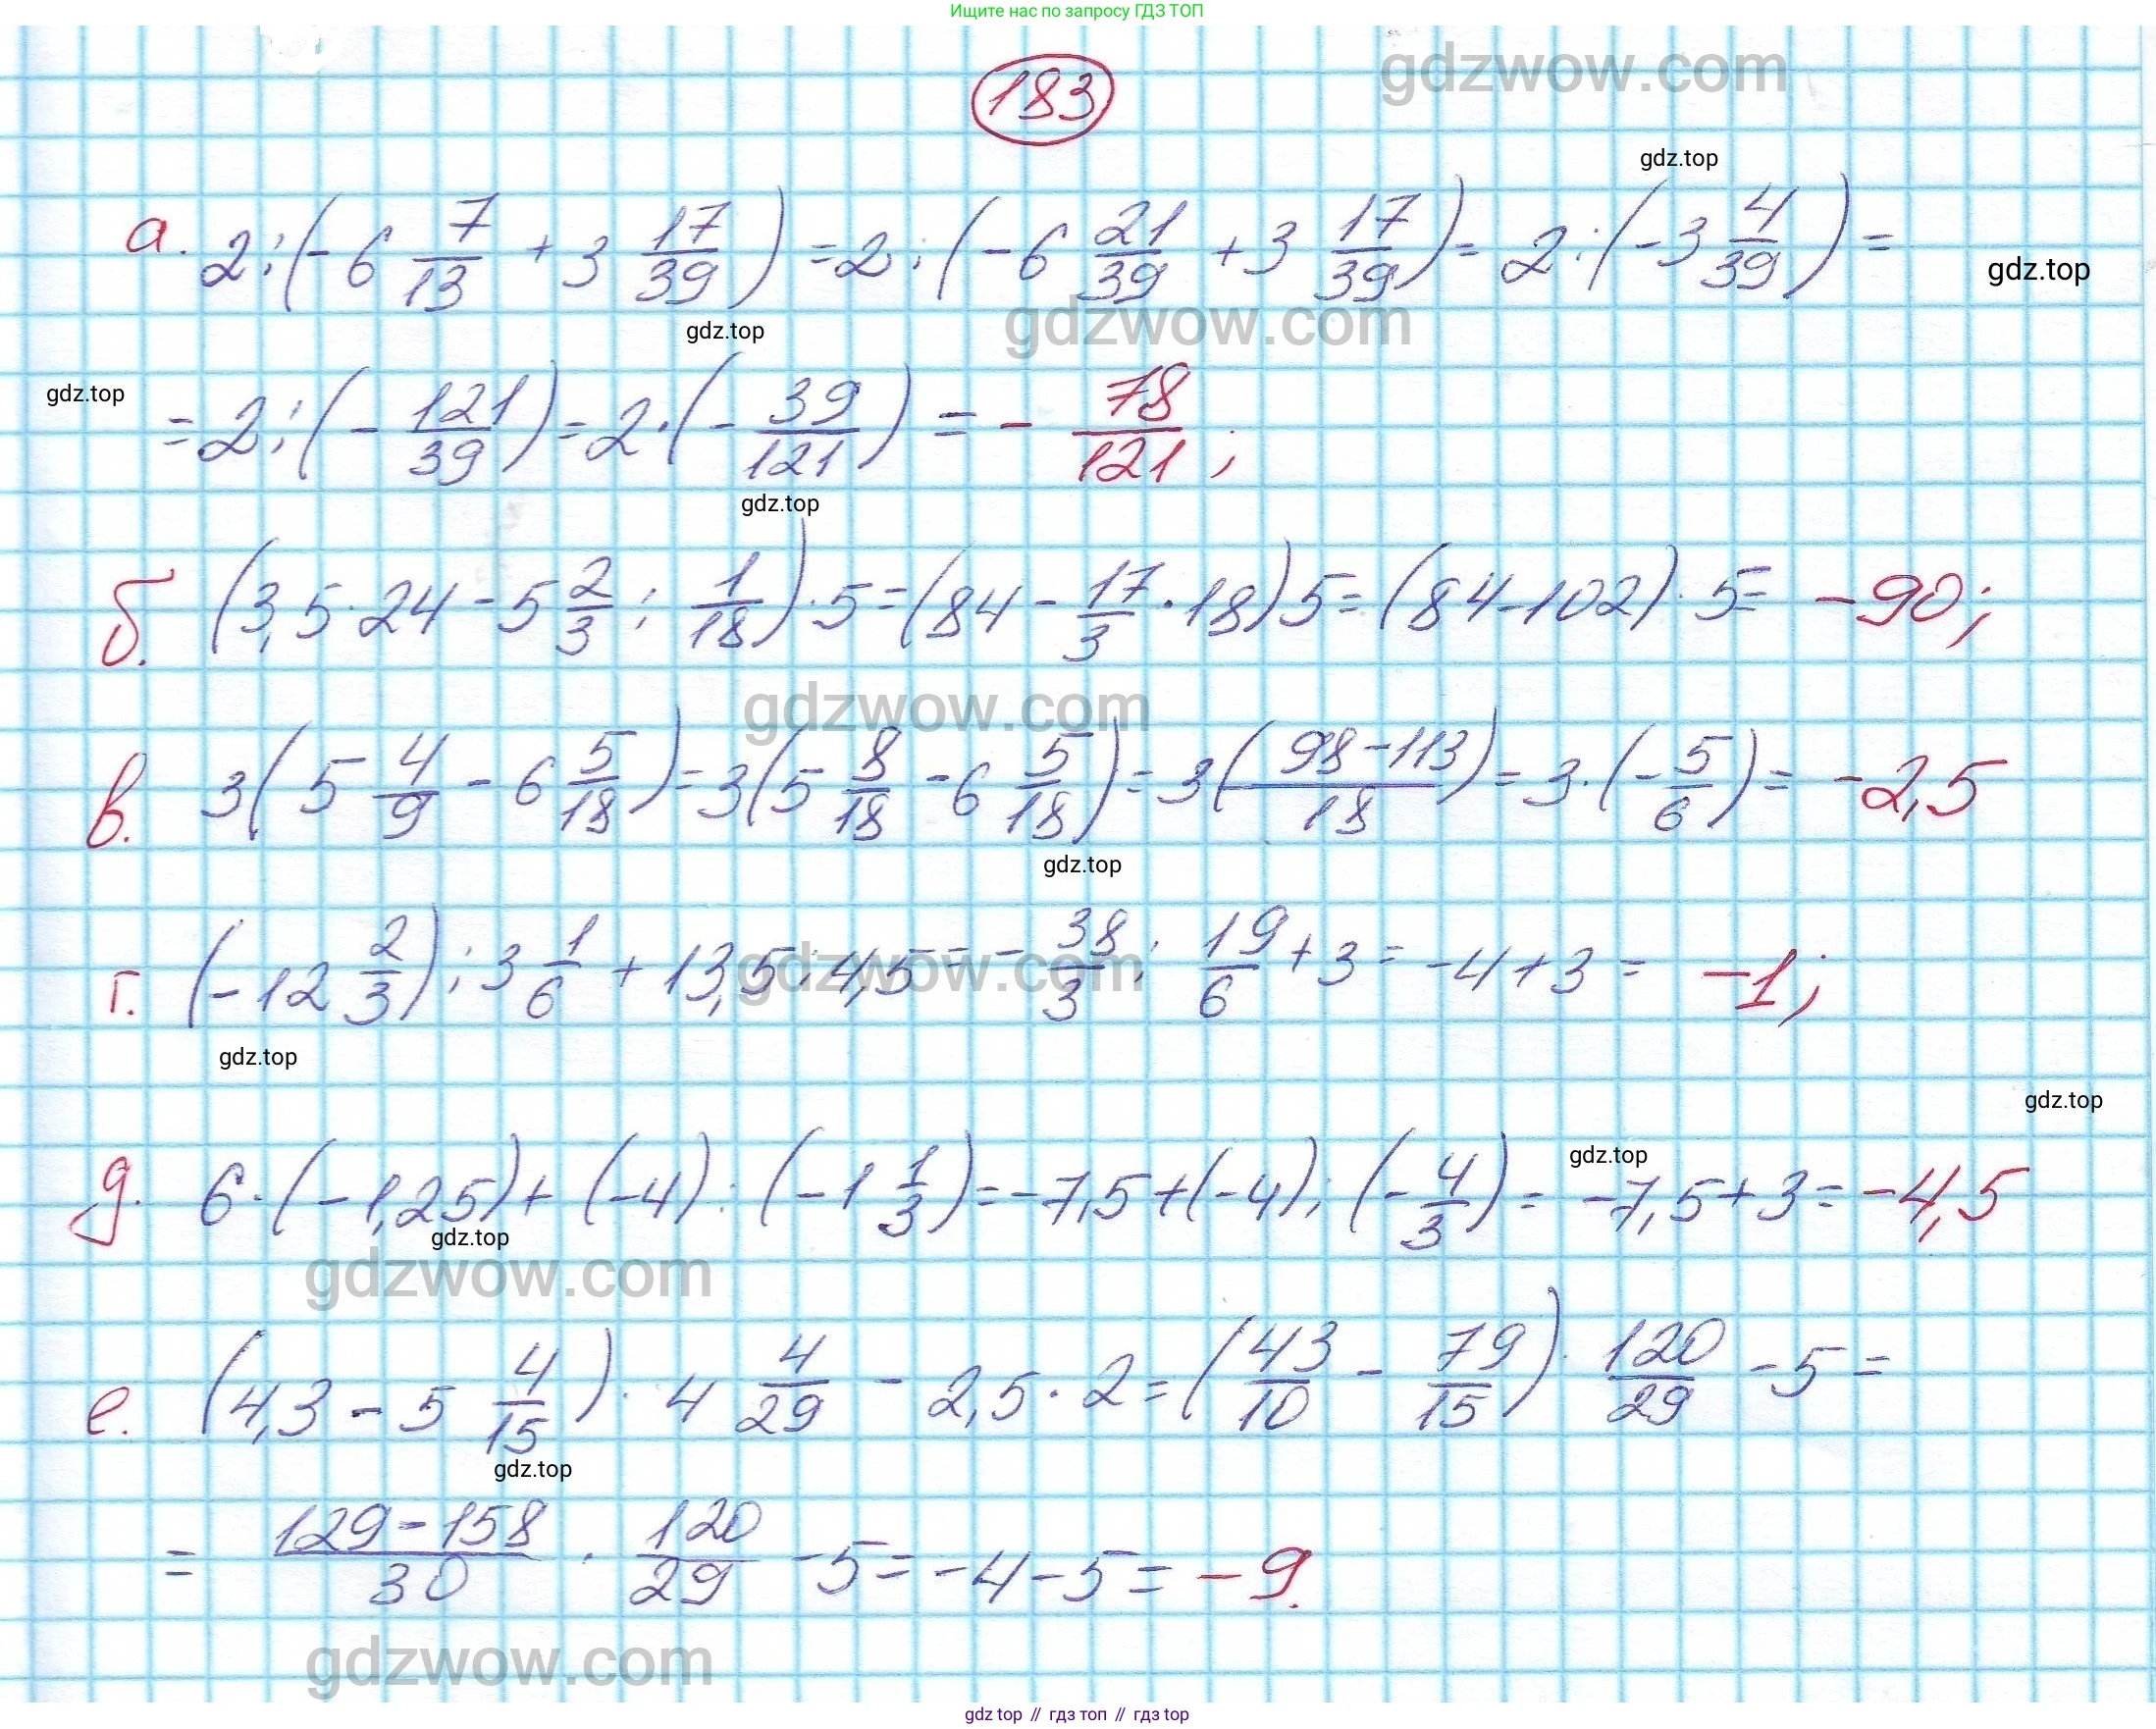 Ищите нас по запросу ГДЗ ТОП
183
gdzwow.com
gdz.top
а. 2:(-6 7/13 + 3 17/39) = 2:(-6 21/39 + 3 17/39) = 2:(-3 4/39) =
gdz.top
gdz.top
gdzwow.com
gdz.top
= 2:(- 121/39) = 2·(- 39/121) = - 78/121;
gdz.top
б. (3,5·24 - 5 2/3 : 1/18)·5 = (84 - 17/3 · 18)5 = (84-102)·5 = -90;
gdzwow.com
в. 3(5 4/9 - 6 5/18) = 3(5 8/18 - 6 5/18) = 3((98-113)/18) = 3·(- 5/6) = -2,5
gdz.top
г. (-12 2/3):3 1/6 + 13,5:4,5 = - 38/3 : 19/6 + 3 = -4+3 = -1;
gdzwow.com
gdz.top
gdz.top
gdz.top
д. 6·(-1,25)+(-4):(-1 1/3) = -7,5+(-4):(- 4/3) = -7,5+3 = -4,5
gdz.top
gdzwow.com
е. (4,3 - 5 4/15)· 4 4/29 - 2,5·2 = (43/10 - 79/15)· 120/29 - 5 =
gdz.top
= (129-158)/30 · 120/29 - 5 = -4-5 = -9.
gdzwow.com
gdz top // гдз топ // gdz top